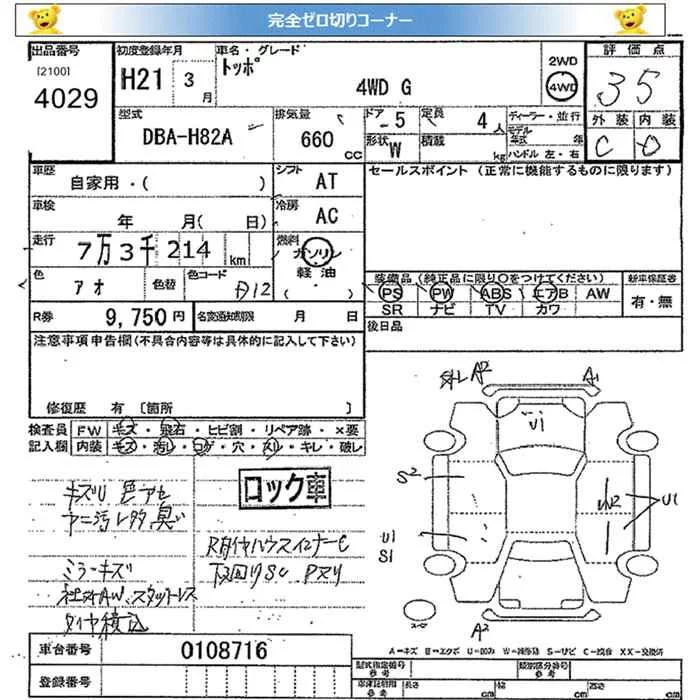 完全ゼロ切りコーナー
出品番号 初度登録年月 車名・グレード 評価点
[2100] トッポ 2WD
4029 H21 3月 4WD G 4WD 3.5
型式 排気量 ドア 定員 ディーラー・並行 外装 内装
DBA-H82A 660cc 5 4人 モデル年式 年 C D
形状 W 積載 kg ハンドル 左・右
車歴 自家用・( ) シフト AT セールスポイント (正常に機能するものに限ります)
車検 年 月( 日) 冷房 AC
走行 7万3千214km 燃料 ガソリン
軽油
色 アオ 色替 色コード D12 ( ) 装備品 (純正品に限り○をつけてください) 新車保証書
PS PW ABS エアB AW 有・無
SR ナビ TV カワ
R券 9,750円 名変通知期限 月 日 後日品
注意事項申告欄(不具合内容等は具体的に記入して下さい)
修復歴 有 [箇所 ]
検査員 FW キズ・飛石・ヒビ割・リペア跡・×要
記入欄 内装 キズ・汚レ・コゲ・穴・スレ・キレ・破レ
ロック車
キズU 色アセ
ヤニ汚レ多 臭い
R左右タイヤハウスインナーC
下回りSC Pヌリ
ミラーキズ
社外AW、スタットレス
タイヤ積込
外レ A2 A1
U1
S2 W2 U1
U1
S1
A2
A=キズ E=エクボ U=凹み W=補修跡 S=サビ C=腐食 XX=交換済
車台番号 0108716
登録番号
型式指定番号 参考 類別区分番号 参考
車庫証明用 参考 長さ cm 幅 cm 高さ cm